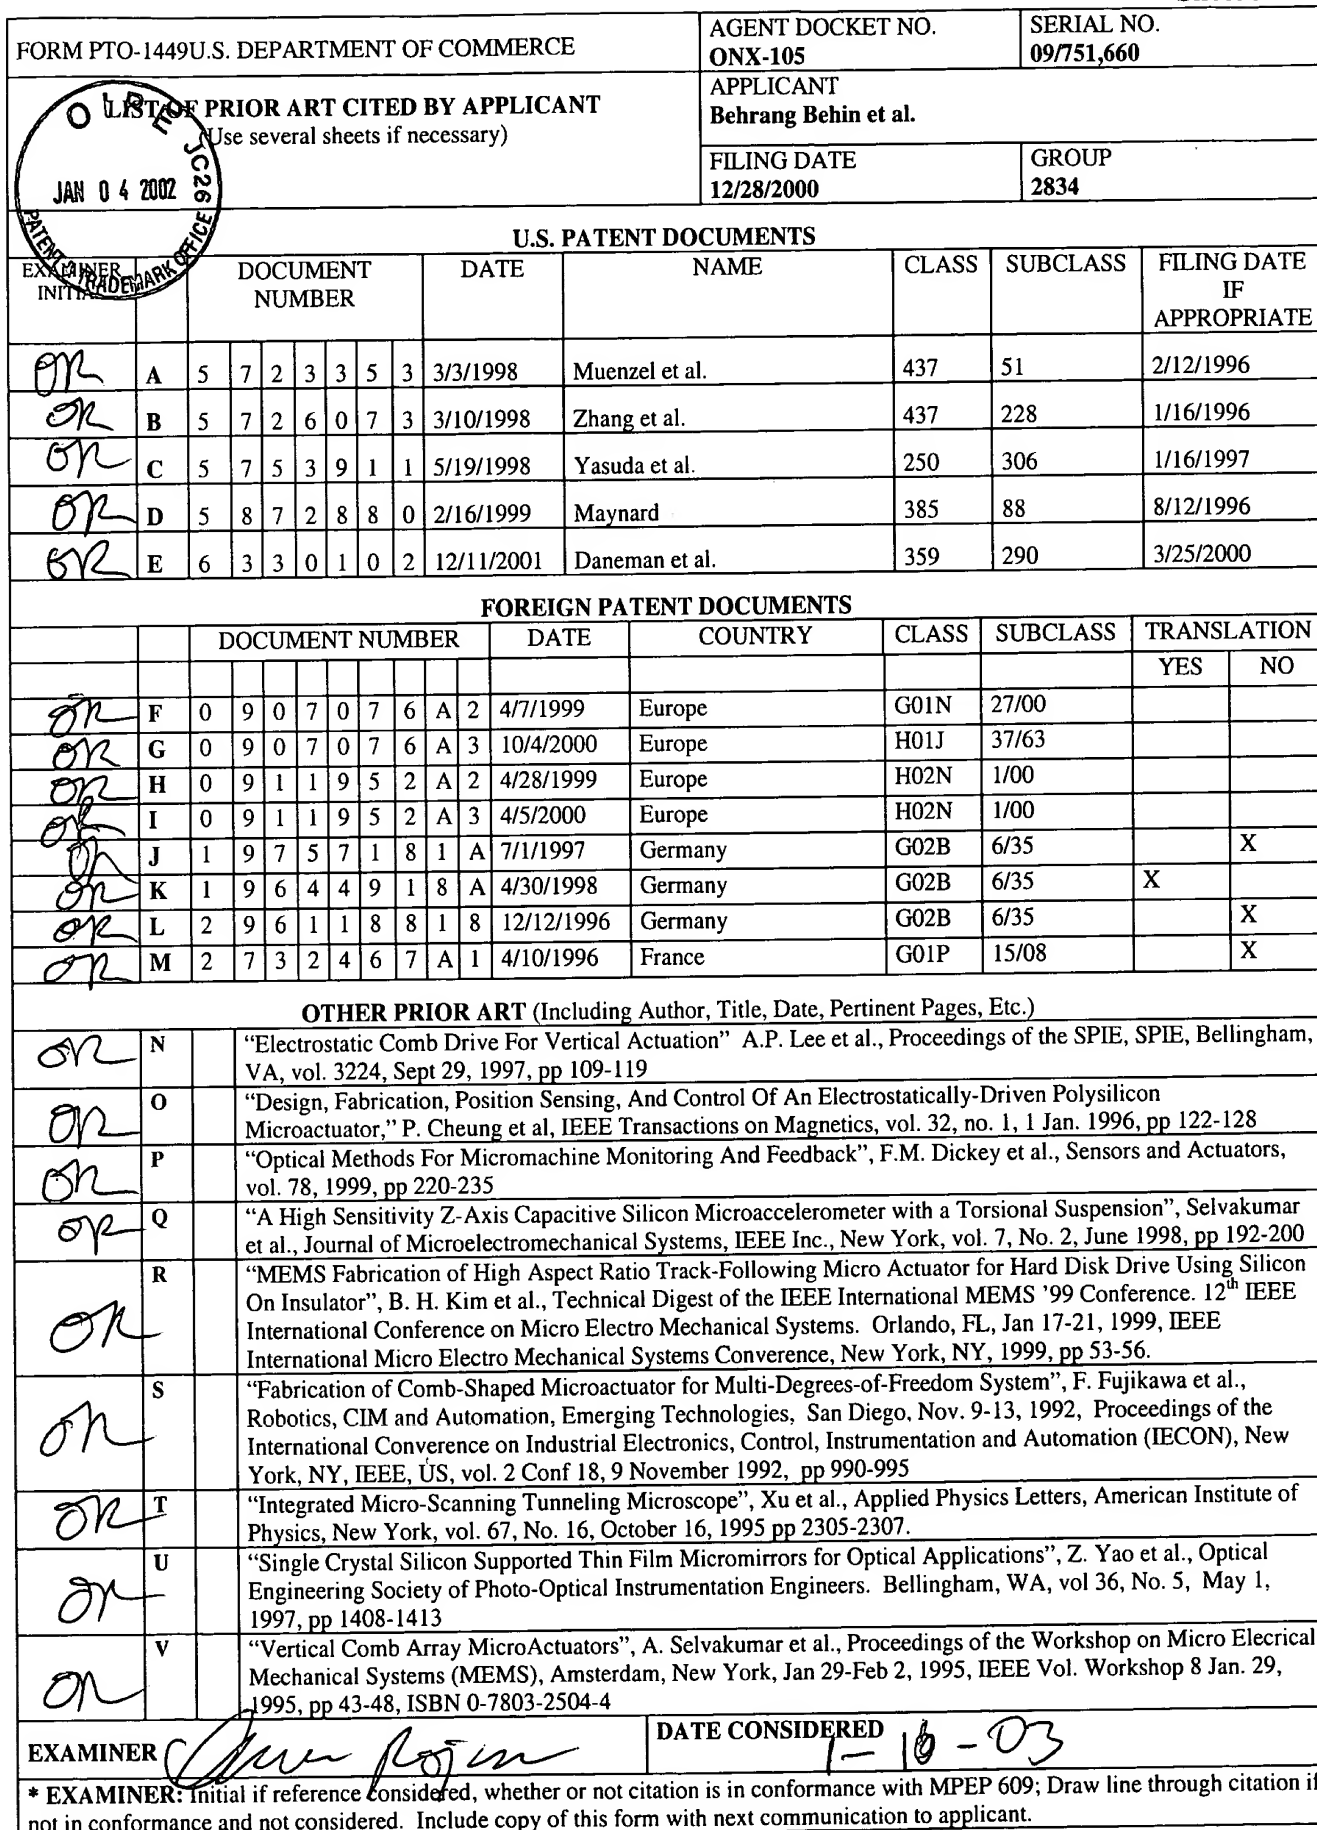 FORM PTO-1449U.S. DEPARTMENT OF COMMERCE
AGENT DOCKET NO.
ONX-105
SERIAL NO.
09/751,660
LIST OF PRIOR ART CITED BY APPLICANT
(Use several sheets if necessary)
APPLICANT
Behrang Behin et al.
FILING DATE
12/28/2000
GROUP
2834
O I P E JC26
JAN 04 2002
PATENT & TRADEMARK OFFICE
U.S. PATENT DOCUMENTS
EXAMINER INITIAL DOCUMENT NUMBER DATE NAME CLASS SUBCLASS FILING DATE IF APPROPRIATE
OR A 5 7 2 3 3 5 3 3/3/1998 Muenzel et al. 437 51 2/12/1996
OR B 5 7 2 6 0 7 3 3/10/1998 Zhang et al. 437 228 1/16/1996
OR C 5 7 5 3 9 1 1 5/19/1998 Yasuda et al. 250 306 1/16/1997
OR D 5 8 7 2 8 8 0 2/16/1999 Maynard 385 88 8/12/1996
OR E 6 3 3 0 1 0 2 12/11/2001 Daneman et al. 359 290 3/25/2000
FOREIGN PATENT DOCUMENTS
DOCUMENT NUMBER DATE COUNTRY CLASS SUBCLASS TRANSLATION
YES NO
OR F 0 9 0 7 0 7 6 A 2 4/7/1999 Europe G01N 27/00
OR G 0 9 0 7 0 7 6 A 3 10/4/2000 Europe H01J 37/63
OR H 0 9 1 1 9 5 2 A 2 4/28/1999 Europe H02N 1/00
OR I 0 9 1 1 9 5 2 A 3 4/5/2000 Europe H02N 1/00
OR J 1 9 7 5 7 1 8 1 A 7/1/1997 Germany G02B 6/35 X
OR K 1 9 6 4 4 9 1 8 A 4/30/1998 Germany G02B 6/35 X
OR L 2 9 6 1 1 8 8 1 8 12/12/1996 Germany G02B 6/35 X
OR M 2 7 3 2 4 6 7 A 1 4/10/1996 France G01P 15/08 X
OTHER PRIOR ART (Including Author, Title, Date, Pertinent Pages, Etc.)
OR N "Electrostatic Comb Drive For Vertical Actuation" A.P. Lee et al., Proceedings of the SPIE, SPIE, Bellingham,
VA, vol. 3224, Sept 29, 1997, pp 109-119
OR O "Design, Fabrication, Position Sensing, And Control Of An Electrostatically-Driven Polysilicon
Microactuator," P. Cheung et al, IEEE Transactions on Magnetics, vol. 32, no. 1, 1 Jan. 1996, pp 122-128
OR P "Optical Methods For Micromachine Monitoring And Feedback", F.M. Dickey et al., Sensors and Actuators,
vol. 78, 1999, pp 220-235
OR Q "A High Sensitivity Z-Axis Capacitive Silicon Microaccelerometer with a Torsional Suspension", Selvakumar
et al., Journal of Microelectromechanical Systems, IEEE Inc., New York, vol. 7, No. 2, June 1998, pp 192-200
OR R "MEMS Fabrication of High Aspect Ratio Track-Following Micro Actuator for Hard Disk Drive Using Silicon
On Insulator", B. H. Kim et al., Technical Digest of the IEEE International MEMS '99 Conference. 12th IEEE
International Conference on Micro Electro Mechanical Systems. Orlando, FL, Jan 17-21, 1999, IEEE
International Micro Electro Mechanical Systems Converence, New York, NY, 1999, pp 53-56.
OR S "Fabrication of Comb-Shaped Microactuator for Multi-Degrees-of-Freedom System", F. Fujikawa et al.,
Robotics, CIM and Automation, Emerging Technologies, San Diego, Nov. 9-13, 1992, Proceedings of the
International Converence on Industrial Electronics, Control, Instrumentation and Automation (IECON), New
York, NY, IEEE, US, vol. 2 Conf 18, 9 November 1992, pp 990-995
OR T "Integrated Micro-Scanning Tunneling Microscope", Xu et al., Applied Physics Letters, American Institute of
Physics, New York, vol. 67, No. 16, October 16, 1995 pp 2305-2307.
OR U "Single Crystal Silicon Supported Thin Film Micromirrors for Optical Applications", Z. Yao et al., Optical
Engineering Society of Photo-Optical Instrumentation Engineers. Bellingham, WA, vol 36, No. 5, May 1,
1997, pp 1408-1413
OR V "Vertical Comb Array MicroActuators", A. Selvakumar et al., Proceedings of the Workshop on Micro Elecrical
Mechanical Systems (MEMS), Amsterdam, New York, Jan 29-Feb 2, 1995, IEEE Vol. Workshop 8 Jan. 29,
1995, pp 43-48, ISBN 0-7803-2504-4
EXAMINER Rojas
DATE CONSIDERED 1-10-03
* EXAMINER: Initial if reference considered, whether or not citation is in conformance with MPEP 609; Draw line through citation if
not in conformance and not considered. Include copy of this form with next communication to applicant.